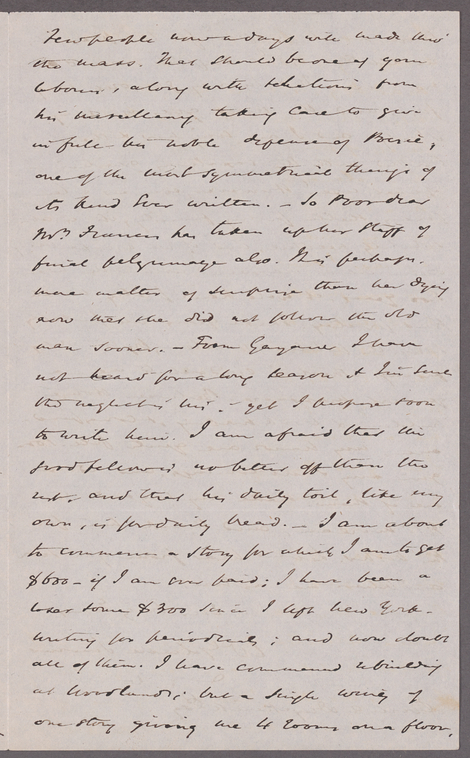 Few people now a days will wade thro'
the mass. That should be one of your
labours, along with selections from
his miscellany taking care to give
in full his noble defense of Poesie,
one of the most symmetrical things of
its kind ever written. — So Poor dear
Mrs. Francis has taken up her staff of
final pilgrimage also. It is perhaps
more matter of surprise than her dying
now that she did not follow the old
man sooner. — From I have
not heard for a long season & I'm sure
the neglect is his. — yet I propose soon
to write him. I am afraid that the
good fellow is no better off than the
rest, and that his daily toil, like my
own, is for daily bread. — I am about
to commence a story for which I am to get
$600 — if I am ever paid; I have been a
loser some $300 since I left New York.
writing for periodicals; and now doubt
all of them. I have commenced rebuilding
at Woodlands; but a single wing of
one story giving me 4 rooms on a floor,